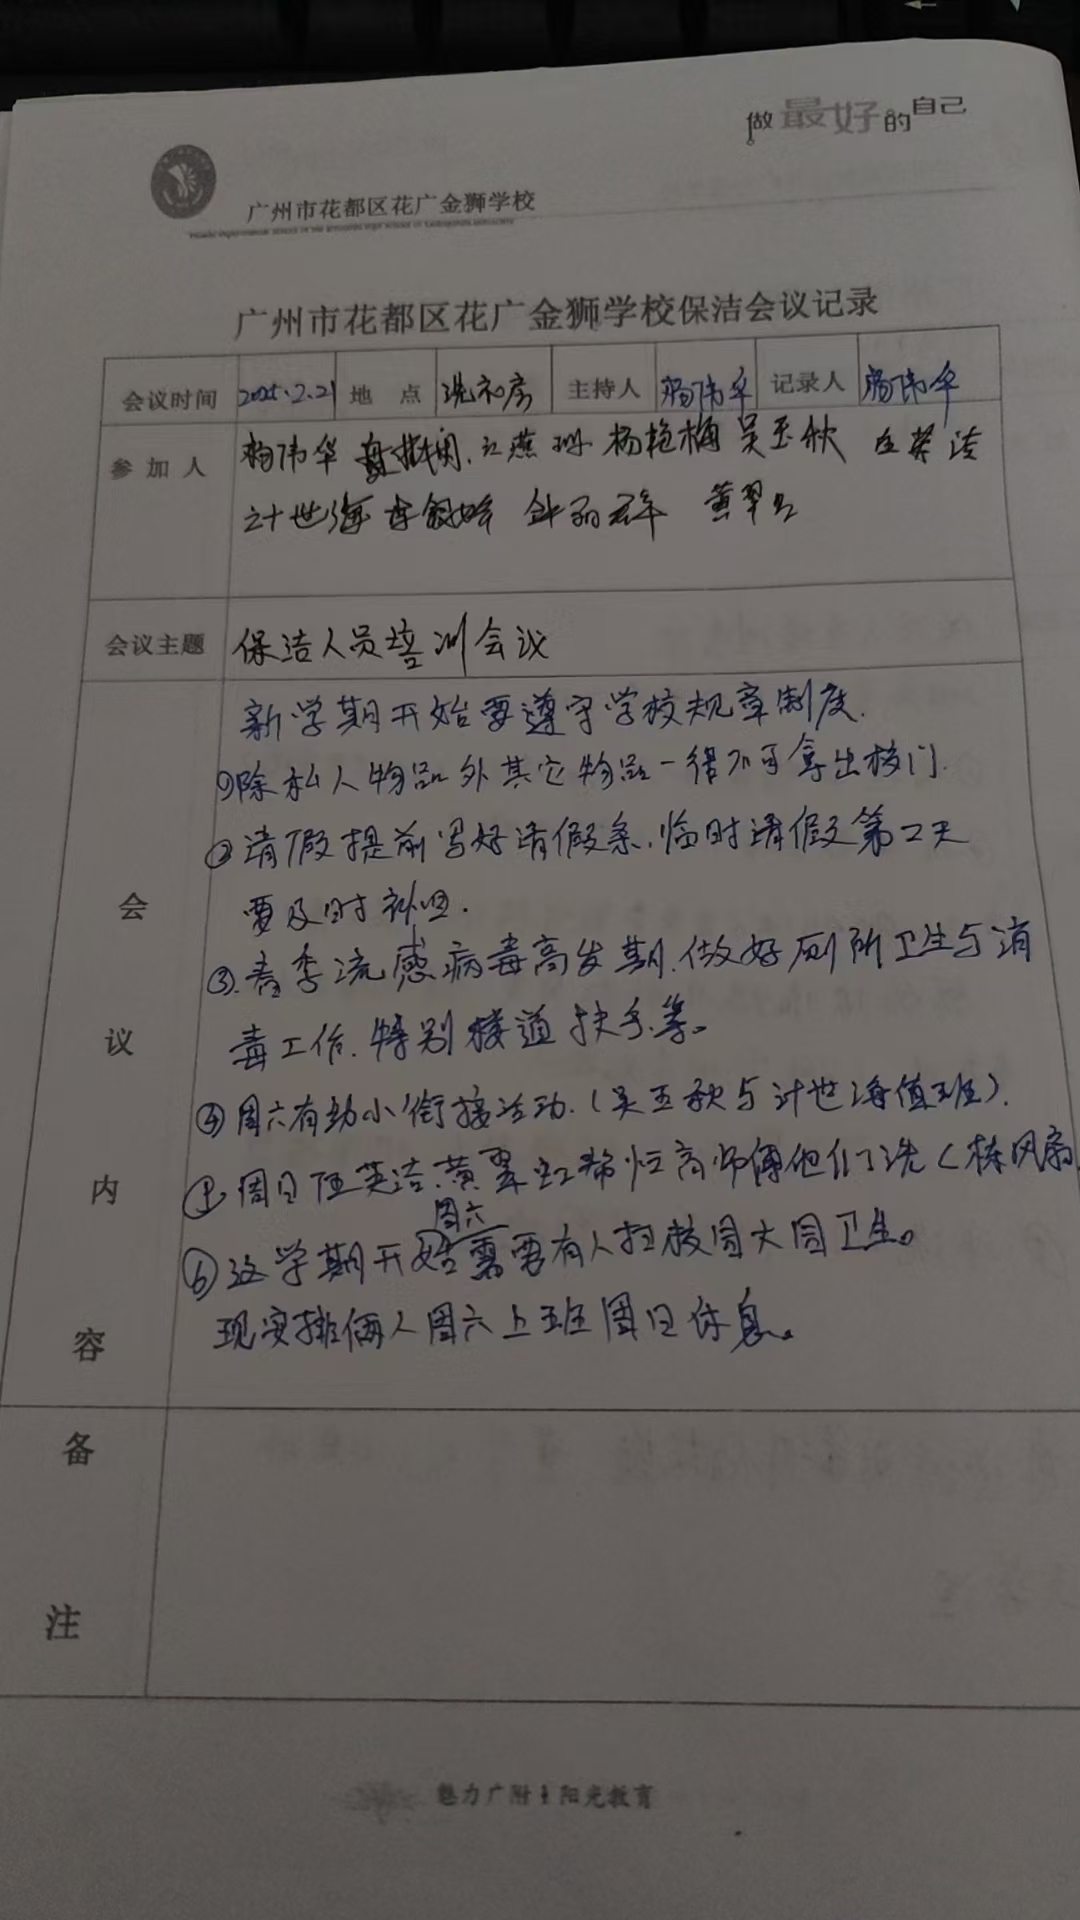 做最好的自己
广州市花都区花广金狮学校
广州市花都区花广金狮学校保洁会议记录
会议时间 2025.2.21 地点 洗衣房 主持人 杨伟华 记录人 杨伟华
参加人 杨伟华 燕珊 杨艳梅 吴玉秋 英洁
计世海 李 钟丽群 黄翠红
会议主题 保洁人员培训会议
会议内容
新学期开始要遵守学校规章制度.
①除私人物品外其它物品一律不可拿出校门.
②请假提前写好请假条.临时请假第二天
要及时补回.
③.春季流感病毒高发期.做好厕所卫生与消
毒工作.特别楼道扶手.等。
④周六有幼小衔接活动.(吴玉秋与计世海值班).
周日 英洁.黄翠红帮忙 师傅他们洗 栋风扇
周六
⑥这学期开始需要有人扫校园大园卫生。
现安排俩人周六上班周日休息。
备注
魅力广附 阳光教育